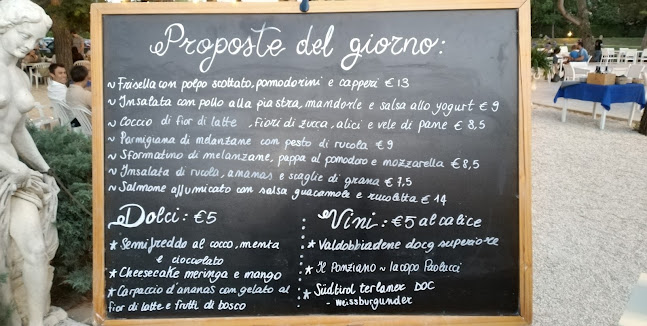 Proposte del giorno:
~ Frisella con polpo scottato, pomodorini e capperi € 13
~ Insalata con pollo alla piastra, mandorle e salsa allo yogurt € 9
~ Coccio di fior di latte, fiori di zucca, alici e vele di pane € 8,5
~ Parmigiana di melanzane con pesto di rucola € 9
~ Sformatino di melanzane, pappa al pomodoro e mozzarella € 8,5
~ Insalata di rucola, ananas e scaglie di grana € 7,5
~ Salmone affumicato con salsa guacamole e rucoletta € 14
Dolci: €5
* Semifreddo al cocco, menta
e cioccolato
* Cheesecake meringa e mango
* Carpaccio d'ananas con gelato al
fior di latte e frutti di bosco
Vini: €5 al calice
* Valdobbiadene docg superiore
* Il Ponziano ~ Iacopo Paolucci
* Südtirol terlaner DOC
- Weissburgunder